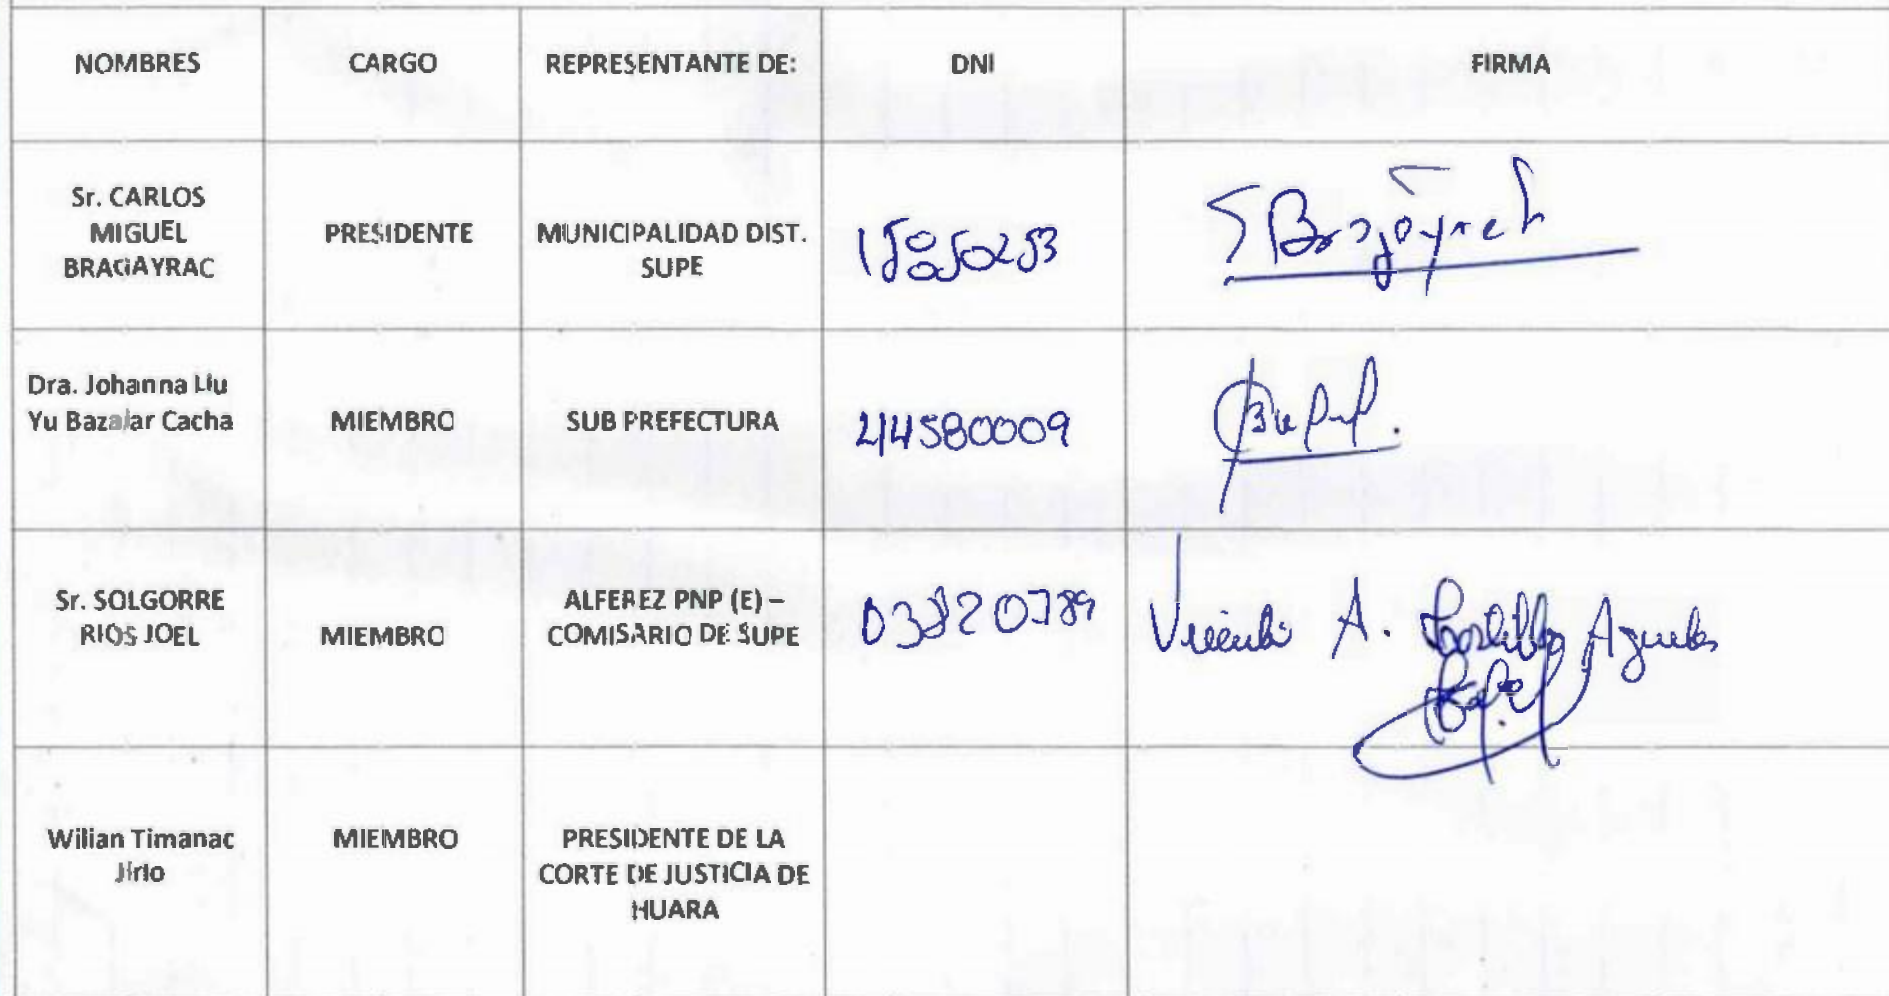 NOMBRES CARGO REPRESENTANTE DE: DNI FIRMA
Sr. CARLOS
MIGUEL
BRAGAYRAC
PRESIDENTE
MUNICIPALIDAD DIST.
SUPE
Dra. Johanna Liu
Yu Bazalar Cacha
MIEMBRO
SUB PREFECTURA
44580009
Sr. SOLGORRE
RIOS JOEL
MIEMBRO
ALFEREZ PNP (E) –
COMISARIO DE SUPE
A.
Wilian Timanac
Jirio
MIEMBRO
PRESIDENTE DE LA
CORTE DE JUSTICIA DE
HUARA